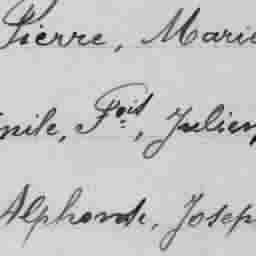 Pierre, Marie
mile, Fois, Julien,
Alphonse, Josep